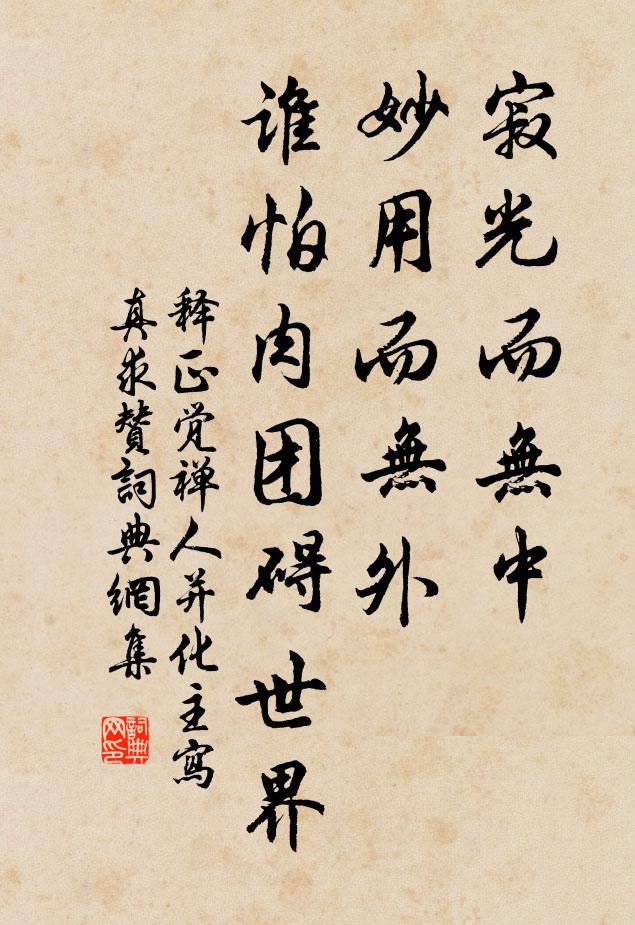 寂光而無中
妙用而無外
谁怕肉团碍世界
释正觉禅人并化主寫
真求賛詞典網集
詞典
网印